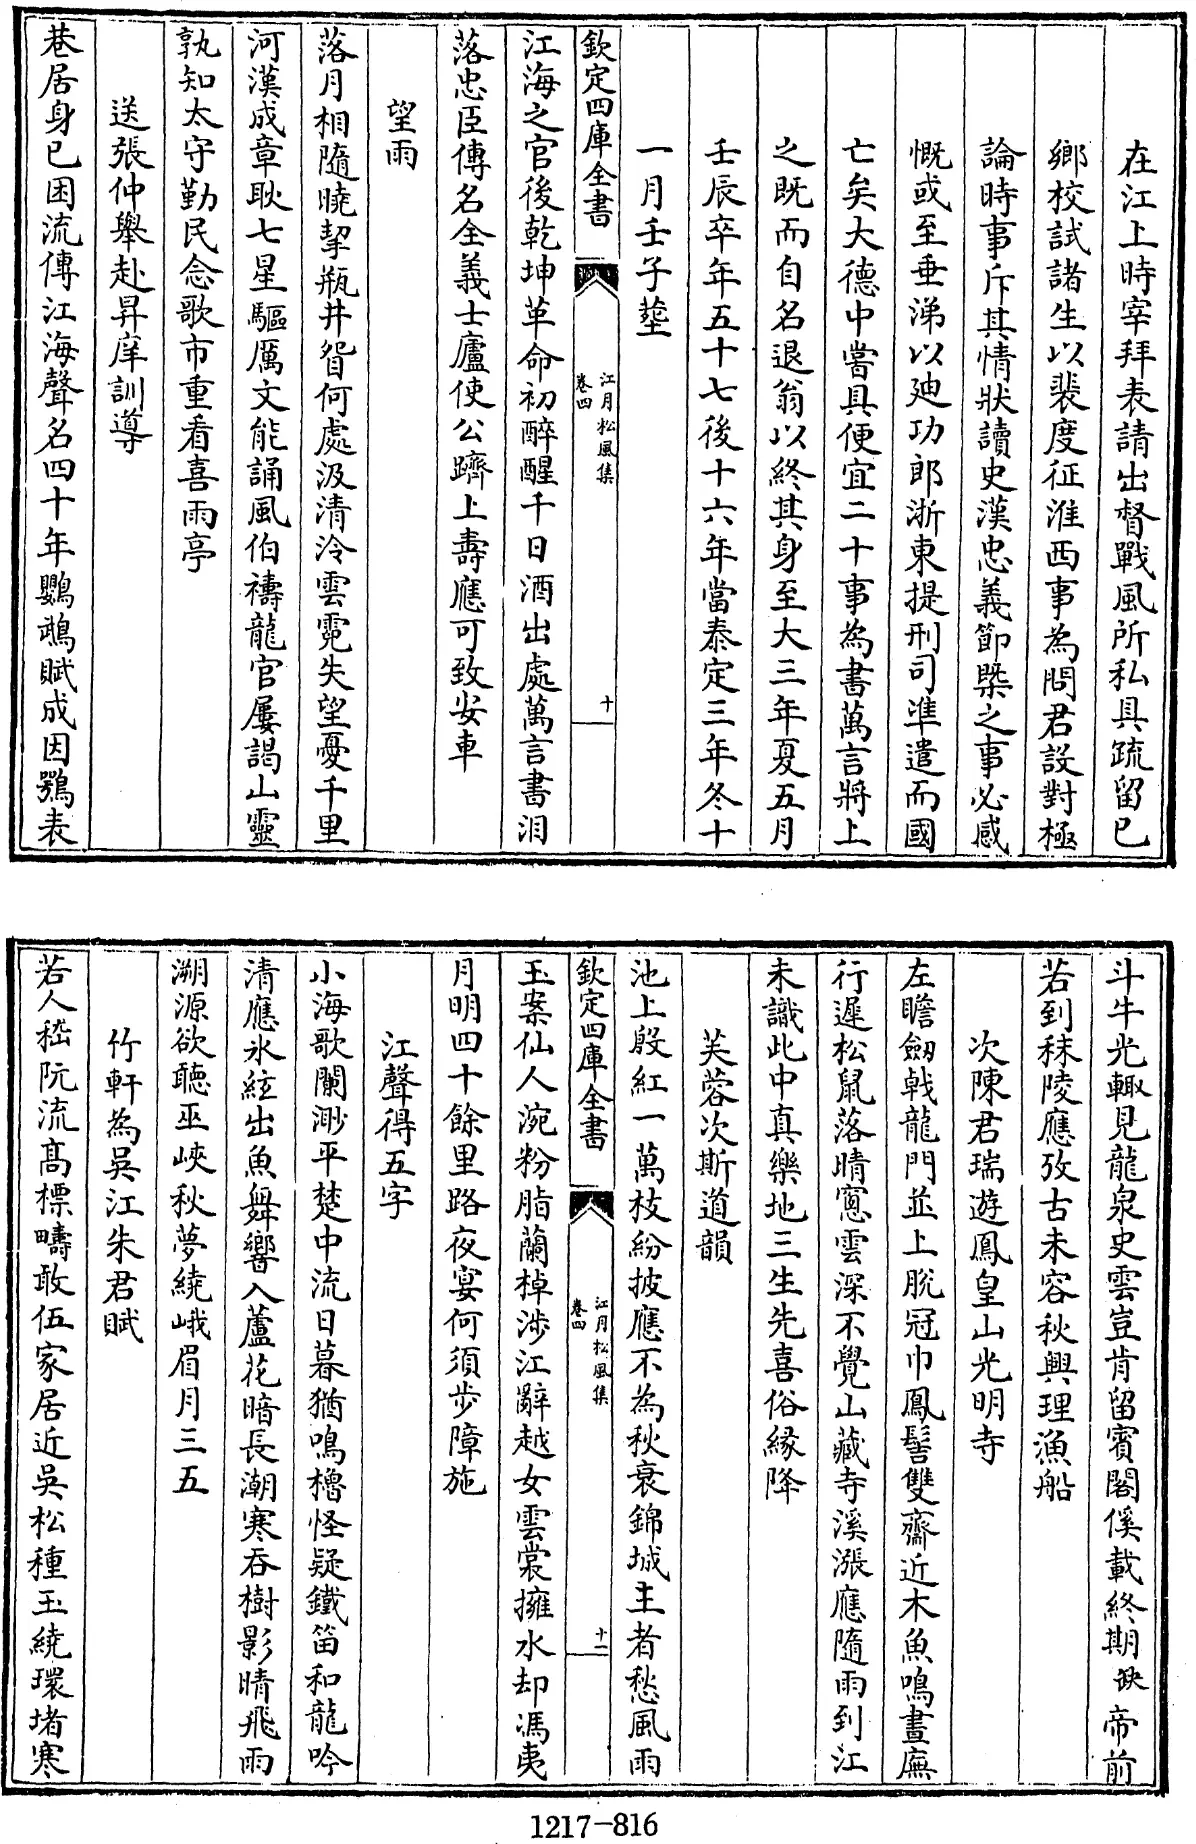 在江上時宰拜表請出督戰風所私具疏留已
鄉校試諸生以裴度征淮西事為問君設對極
論時事斥其情狀讀史漢忠義節槩之事必感
慨或至垂涕以廸功郎浙東提刑司凖遣而國
亡矣大德中嘗具便宜二十事為書萬言將上
之既而自名退翁以終其身至大三年夏五月
壬辰卒年五十七後十六年當泰定三年冬十
一月壬子塟
欽定四庫全書
江月松風集
卷四
十
江海之官後乾坤革命初醉醒千日酒出處萬言書泪
落忠臣傳名全義士廬使公躋上壽應可致安車
望雨
落月相隨曉挈瓶井眢何處汲清泠雲霓失望憂千里
河漢成章耿七星驅厲文能誦風伯禱龍官屢謁山靈
孰知太守勤民念歌市重看喜雨亭
送張仲舉赴昇庠訓導
巷居身已困流傳江海聲名四十年鸚鵡賦成因鶚表
斗牛光輙見龍泉史雲豈肯留賓閣傒載終期缺帝前
若到秣陵應攷古未容秋興理漁船
次陳君瑞遊鳳皇山光明寺
左瞻劔戟龍門並上脫冠巾鳳髻雙齋近木魚鳴晝廡
行遲松鼠落晴窻雲深不覺山藏寺溪漲應隨雨到江
未識此中真樂地三生先喜俗緣降
芙蓉次斯道韻
池上殷紅一萬枝紛披應不為秋衰錦城主者愁風雨
欽定四庫全書
江月松風集
卷四
十一
玉案仙人涴粉脂蘭棹涉江辭越女雲裳擁水却馮夷
月明四十餘里路夜宴何須步障施
江聲得五字
小海歌闌渺平楚中流日暮猶鳴櫓怪疑鐵笛和龍吟
清應氷絃出魚舞響入蘆花暗長潮寒吞樹影晴飛雨
溯源欲聽巫峽秋夢繞峨眉月三五
竹軒為吳江朱君賦
若人嵇阮流高標疇敢伍家居近吳松種玉繞環堵寒
1217-816